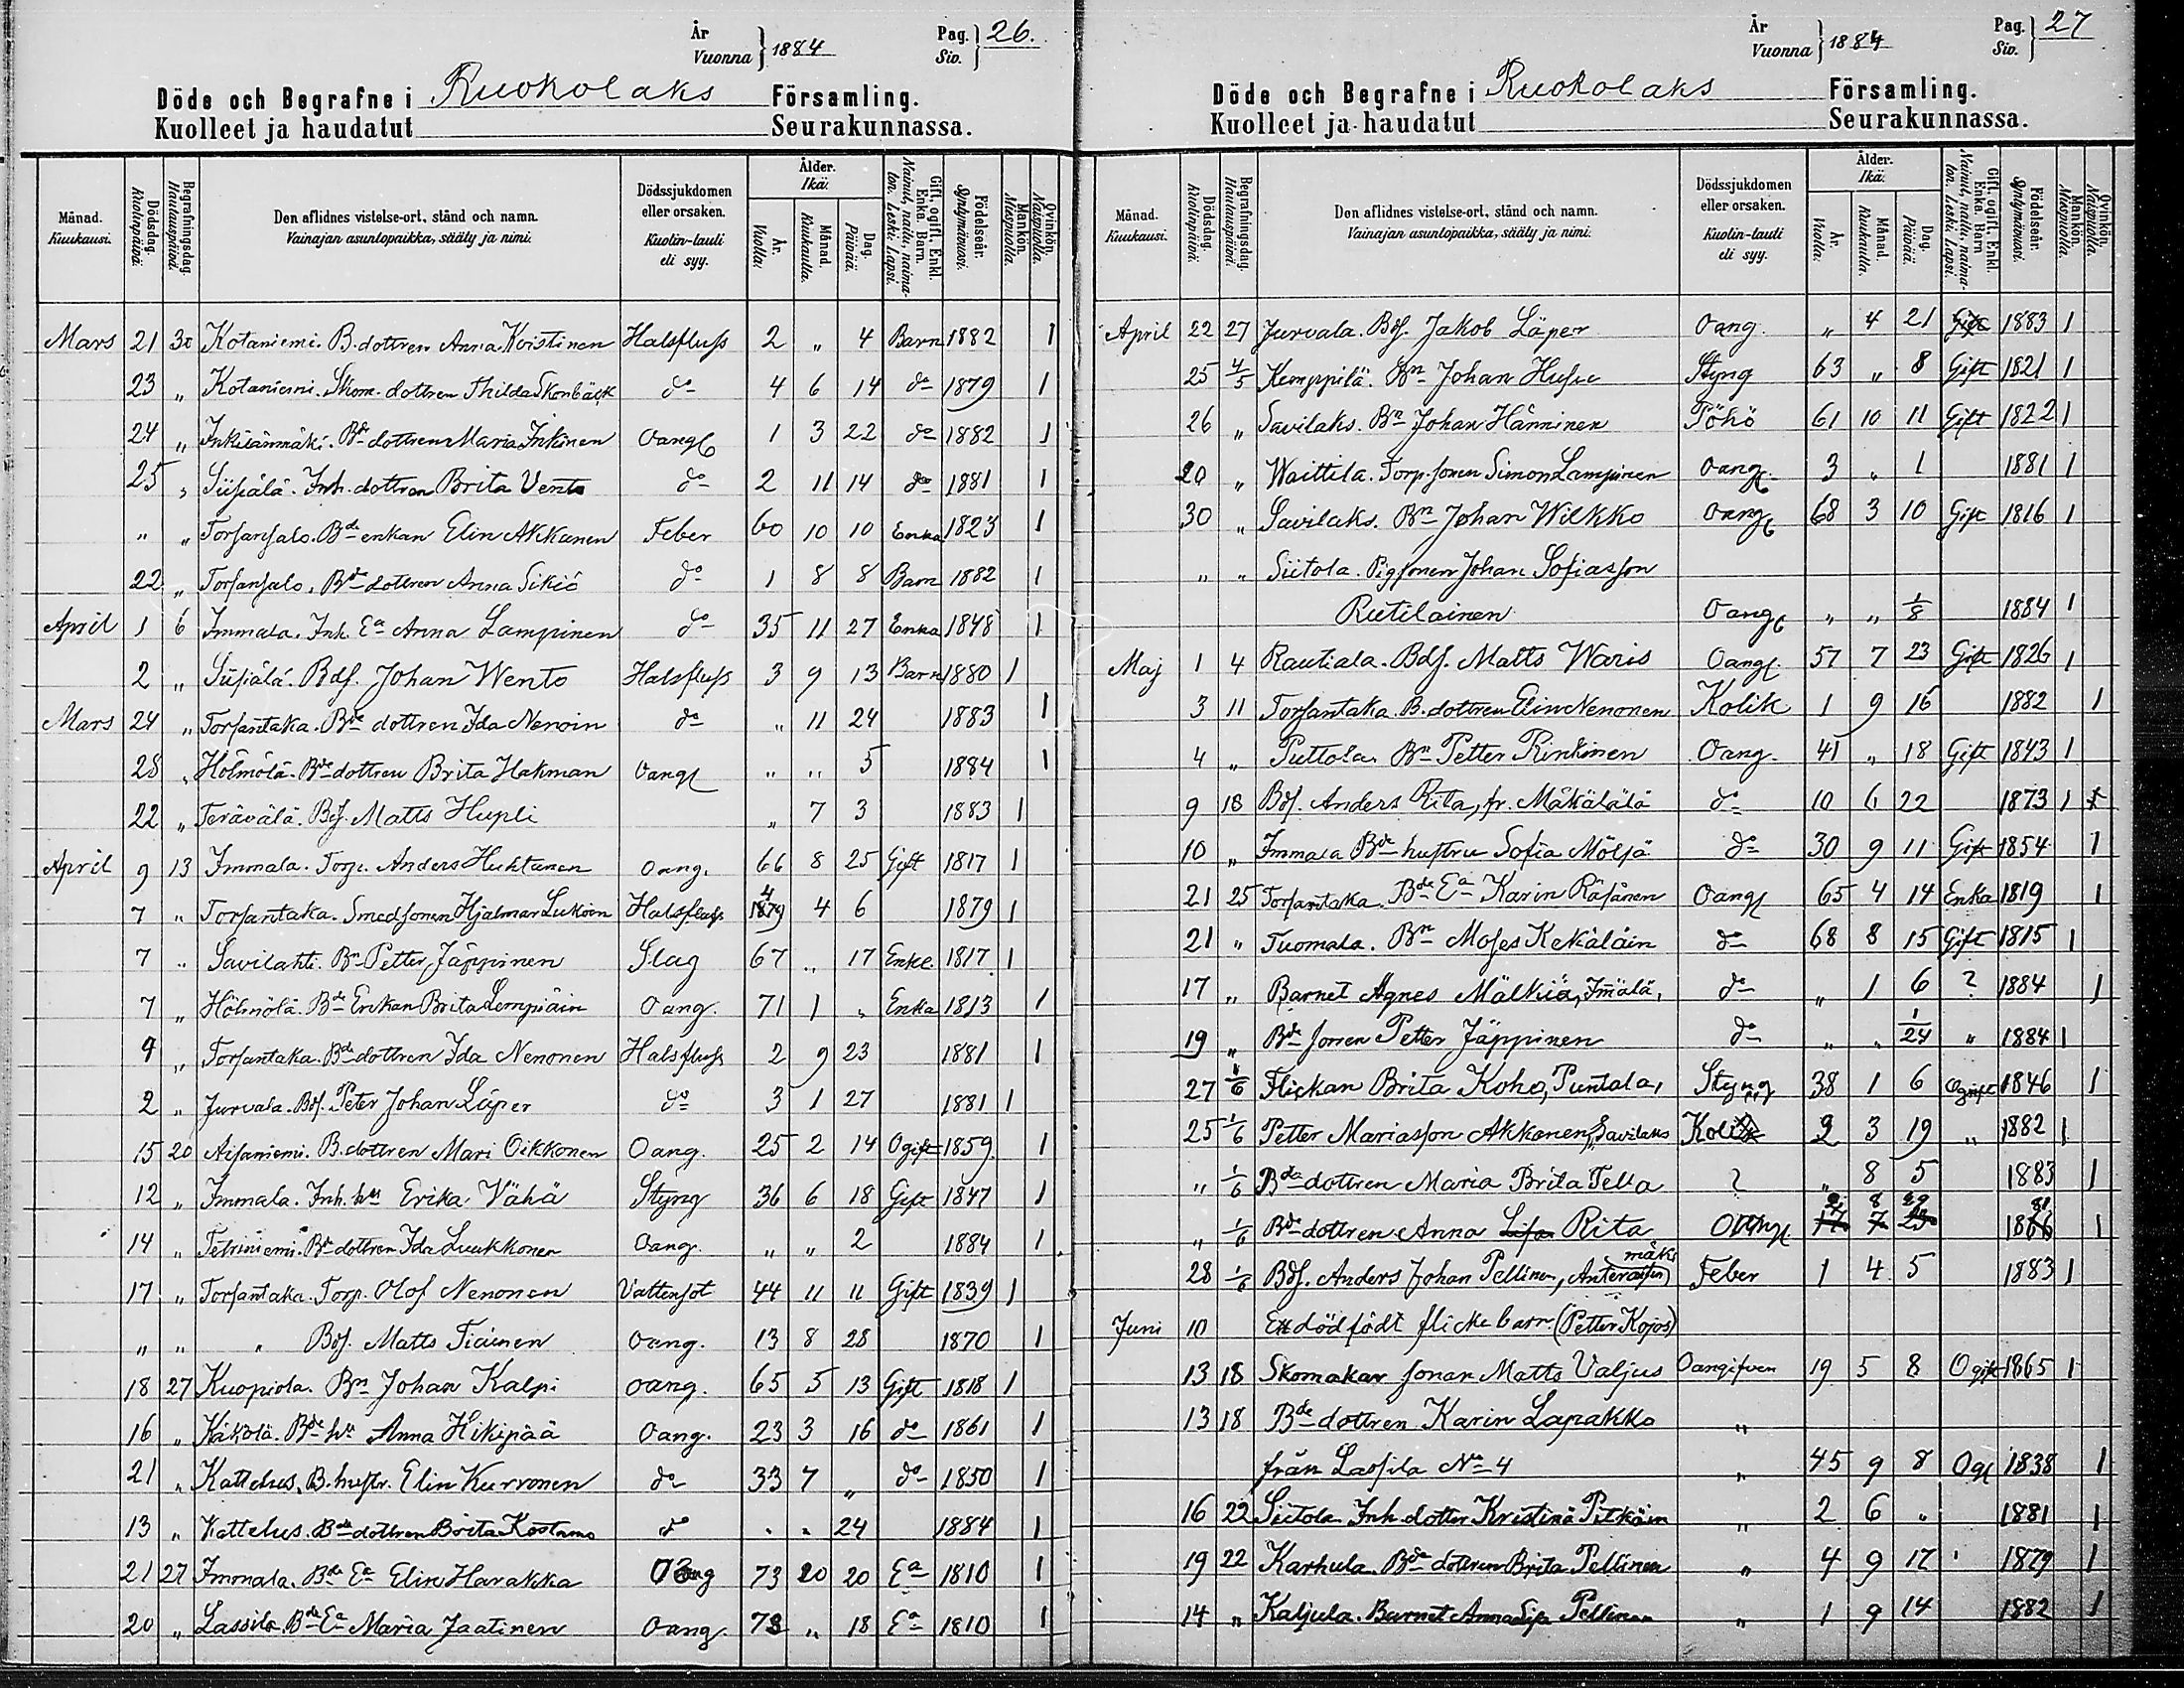 År Vuonna } 1884 Pag. Siv. } 26.
Döde och Begrafne i Ruokolaks Församling.
Kuolleet ja haudatut Seurakunnassa.
Månad. Kuukausi. Dödsdag. Kuolinpäivä. Begrafningsdag. Hautauspäivä. Den aflidnes vistelse-ort, stånd och namn. Vainajan asuntopaikka, sääty ja nimi. Dödssjukdomen eller orsaken. Kuolin-tauti eli syy. Ålder. Ikä. År. Vuotta. Månad. Kuukautta. Dag. Päivää. Gift, ogift, Enkl. Enka. Barn. Nainut, naitu, naimaton. Leski. Lapsi. Födelseår. Syntymävuosi. Mankön. Miespuolta. Qvinkön. Naispuolta.
Mars 21 30 Kotaniemi. B. dottren Anna Koistinen Halsfluss 2 „ 4 Barn 1882 1
23 „ Kotaniemi. Skom. dottren Thilda Skonbäck do 4 6 14 do 1879 1
24 „ Inkilänmäki. Bde dottren Maria Inkinen Oang 1 3 22 do 1882 1
25 „ Siisiälä. Inh. dottren Brita Vento do 2 11 14 do 1881 1
„ „ Torsansalo. Bde enkan Elin Akkanen Feber 60 10 10 Enka 1823 1
22 „ Torsansalo. Bde dottren Anna Sikiö do 1 8 8 Barn 1882 1
April 1 6 Immala. Inh. Ea Anna Lampinen do 35 11 27 Enka 1848 1
2 „ Siisiälä. Bds. Johan Wento Halsfluss 3 9 13 Barn 1880 1
Mars 24 „ Torsantaka. Bde dottren Ida Nenoin do „ 11 24 1883 1
28 „ Hölmölä. Bde dottren Brita Hakman Oang „ „ 5 1884 1
22 „ Terävälä. Bds. Matts Hupli „ 7 3 1883 1
April 9 13 Immala. Torp. Anders Huktanen Oang. 66 8 25 Gift 1817 1
7 „ Torsantaka. Smedsonen Hjalmar Lukoin Halsfluss 4 4 6 1879 1
7 „ Savilahti. Bn Petter Jäppinen Slag 67 „ 17 Enkl. 1817 1
7 „ Hölmölä. Bde Enkan Brita Lempiäin Oang. 71 1 „ Enka 1813 1
9 „ Torsantaka. Bde dottren Ida Nenonen Halsfluss 2 9 23 1881 1
2 „ Jurvala. Bds. Peter Johan Läper do 3 1 27 1881 1
15 20 Aisaniemi. B. dottren Mari Oikkonen Oang. 25 2 14 Ogift 1859 1
12 „ Immala. Inh. hu Erika Vähä Styng 36 6 18 Gift 1847 1
14 „ Tetriniemi. Bde dottren Ida Luukkonen Oang. „ „ 2 1884 1
17 „ Torsantaka. Torp. Olof Nenonen Vattensot 44 11 11 Gift 1839 1
„ „ „ Bds. Matts Tiainen Oang. 13 8 28 1870 1
18 27 Kuopiola. Bn Johan Kalpi Oang. 65 5 13 Gift 1818 1
16 „ Käkölä. Bde hu Anna Hikipää Oang. 23 3 16 do 1861 1
21 „ Kattelus. B. hustr. Elin Kurvonen do 33 7 „ do 1850 1
13 „ Kattelus. Bde dottren Brita Kostamo do „ „ 24 1884 1
21 27 Immala. Bde Ea Elin Harakka Oang 73 20 20 Ea 1810 1
20 „ Lassila Bde Ea Maria Jaatinen Oang. 73 „ 18 Ea 1810 1
År Vuonna } 1884 Pag. Siv. } 27
Döde och Begrafne i Ruokolaks Församling.
Kuolleet ja haudatut Seurakunnassa.
Månad. Kuukausi. Dödsdag. Kuolinpäivä. Begrafningsdag. Hautauspäivä. Den aflidnes vistelse-ort, stånd och namn. Vainajan asuntopaikka, sääty ja nimi. Dödssjukdomen eller orsaken. Kuolin-tauti eli syy. Ålder. Ikä. År. Vuotta. Månad. Kuukautta. Dag. Päivää. Gift, ogift, Enkl. Enka. Barn. Nainut, naitu, naimaton. Leski. Lapsi. Födelseår. Syntymävuosi. Mankön. Miespuolta. Qvinkön. Naispuolta.
April 22 27 Jurvala. Bds. Jakob Läper Oang. „ 4 21 Gift 1883 1
25 4/5 Kemppilä. Bn Johan Styng 63 „ 8 Gift 1821 1
26 „ Savilaks. Bn Johan Hänninen Pöhö 61 10 11 Gift 1822 1
20 „ Waittila. Torp. sonen Simon Lampinen Oang. 3 „ 1 1881 1
30 „ Savilaks. Bn Johan Wilkko Oang 68 3 10 Gift 1816 1
„ „ Siitola. Pigsonen Johan Sofiasson
Rutilainen Oang „ „ 1/8 1884 1
Maj 1 4 Rautiala. Bds. Matts Waris Oang. 57 7 23 Gift 1826 1
3 11 Torsantaka. B. dottren Elin Nenonen Kolik 1 9 16 1882 1
4 „ Puttola. Bn Petter Rinkinen Oang. 41 „ 18 Gift 1843 1
9 18 Bds. Anders Rita, fr. Mäkälälä do 10 6 22 1873 1
10 „ Immala Bde hustru Sofia Möljä do 30 9 11 Gift 1854 1
21 25 Torsantaka. Bde Ea Karin Räsänen Oang 65 4 14 Enka 1819 1
21 „ Tuomala. Bn Moses Kekäläin do 68 8 15 Gift 1815 1
17 „ Barnet Agnes Mälkiä, Imälä, do „ 1 6 ? 1884 1
19 „ Bde sonen Petter Jäppinen do „ „ 1/24 „ 1884 1
27 1/6 Flickan Brita Koho, Puntala, Styng 38 1 6 Ogift 1846 1
25 1/6 Petter Mariasson Akkanen, Savilaks Kolik 2 3 19 „ 1882 1
„ 1/6 Bde dottren Maria Brita Pella ? „ 8 5 1883 1
„ 1/6 Bde dottren Anna Lisa Rita Oang 2 8 29 1881 1
28 1/6 Bds. Anders Johan Pellinen, Feber 1 4 5 1883 1
Juni 10 Ett dödfödt flickebarn (Petter Kojos)
13 18 Skomakar sonen Matts Valjus Oangifven 19 5 8 Ogift 1865 1
13 18 Bde dottren Karin Lapakko „
från Lassila No 4 „ 45 9 8 Og 1838 1
16 22 Siitola Inh. dotter Kristina Pitkäin „ 2 6 „ 1881 1
19 22 Karhula. Bde dottren Brita Pellinen „ 4 9 17 1879 1
14 „ Kaljula. Barnet Anna Lisa Pellinen „ 1 9 14 1882 1